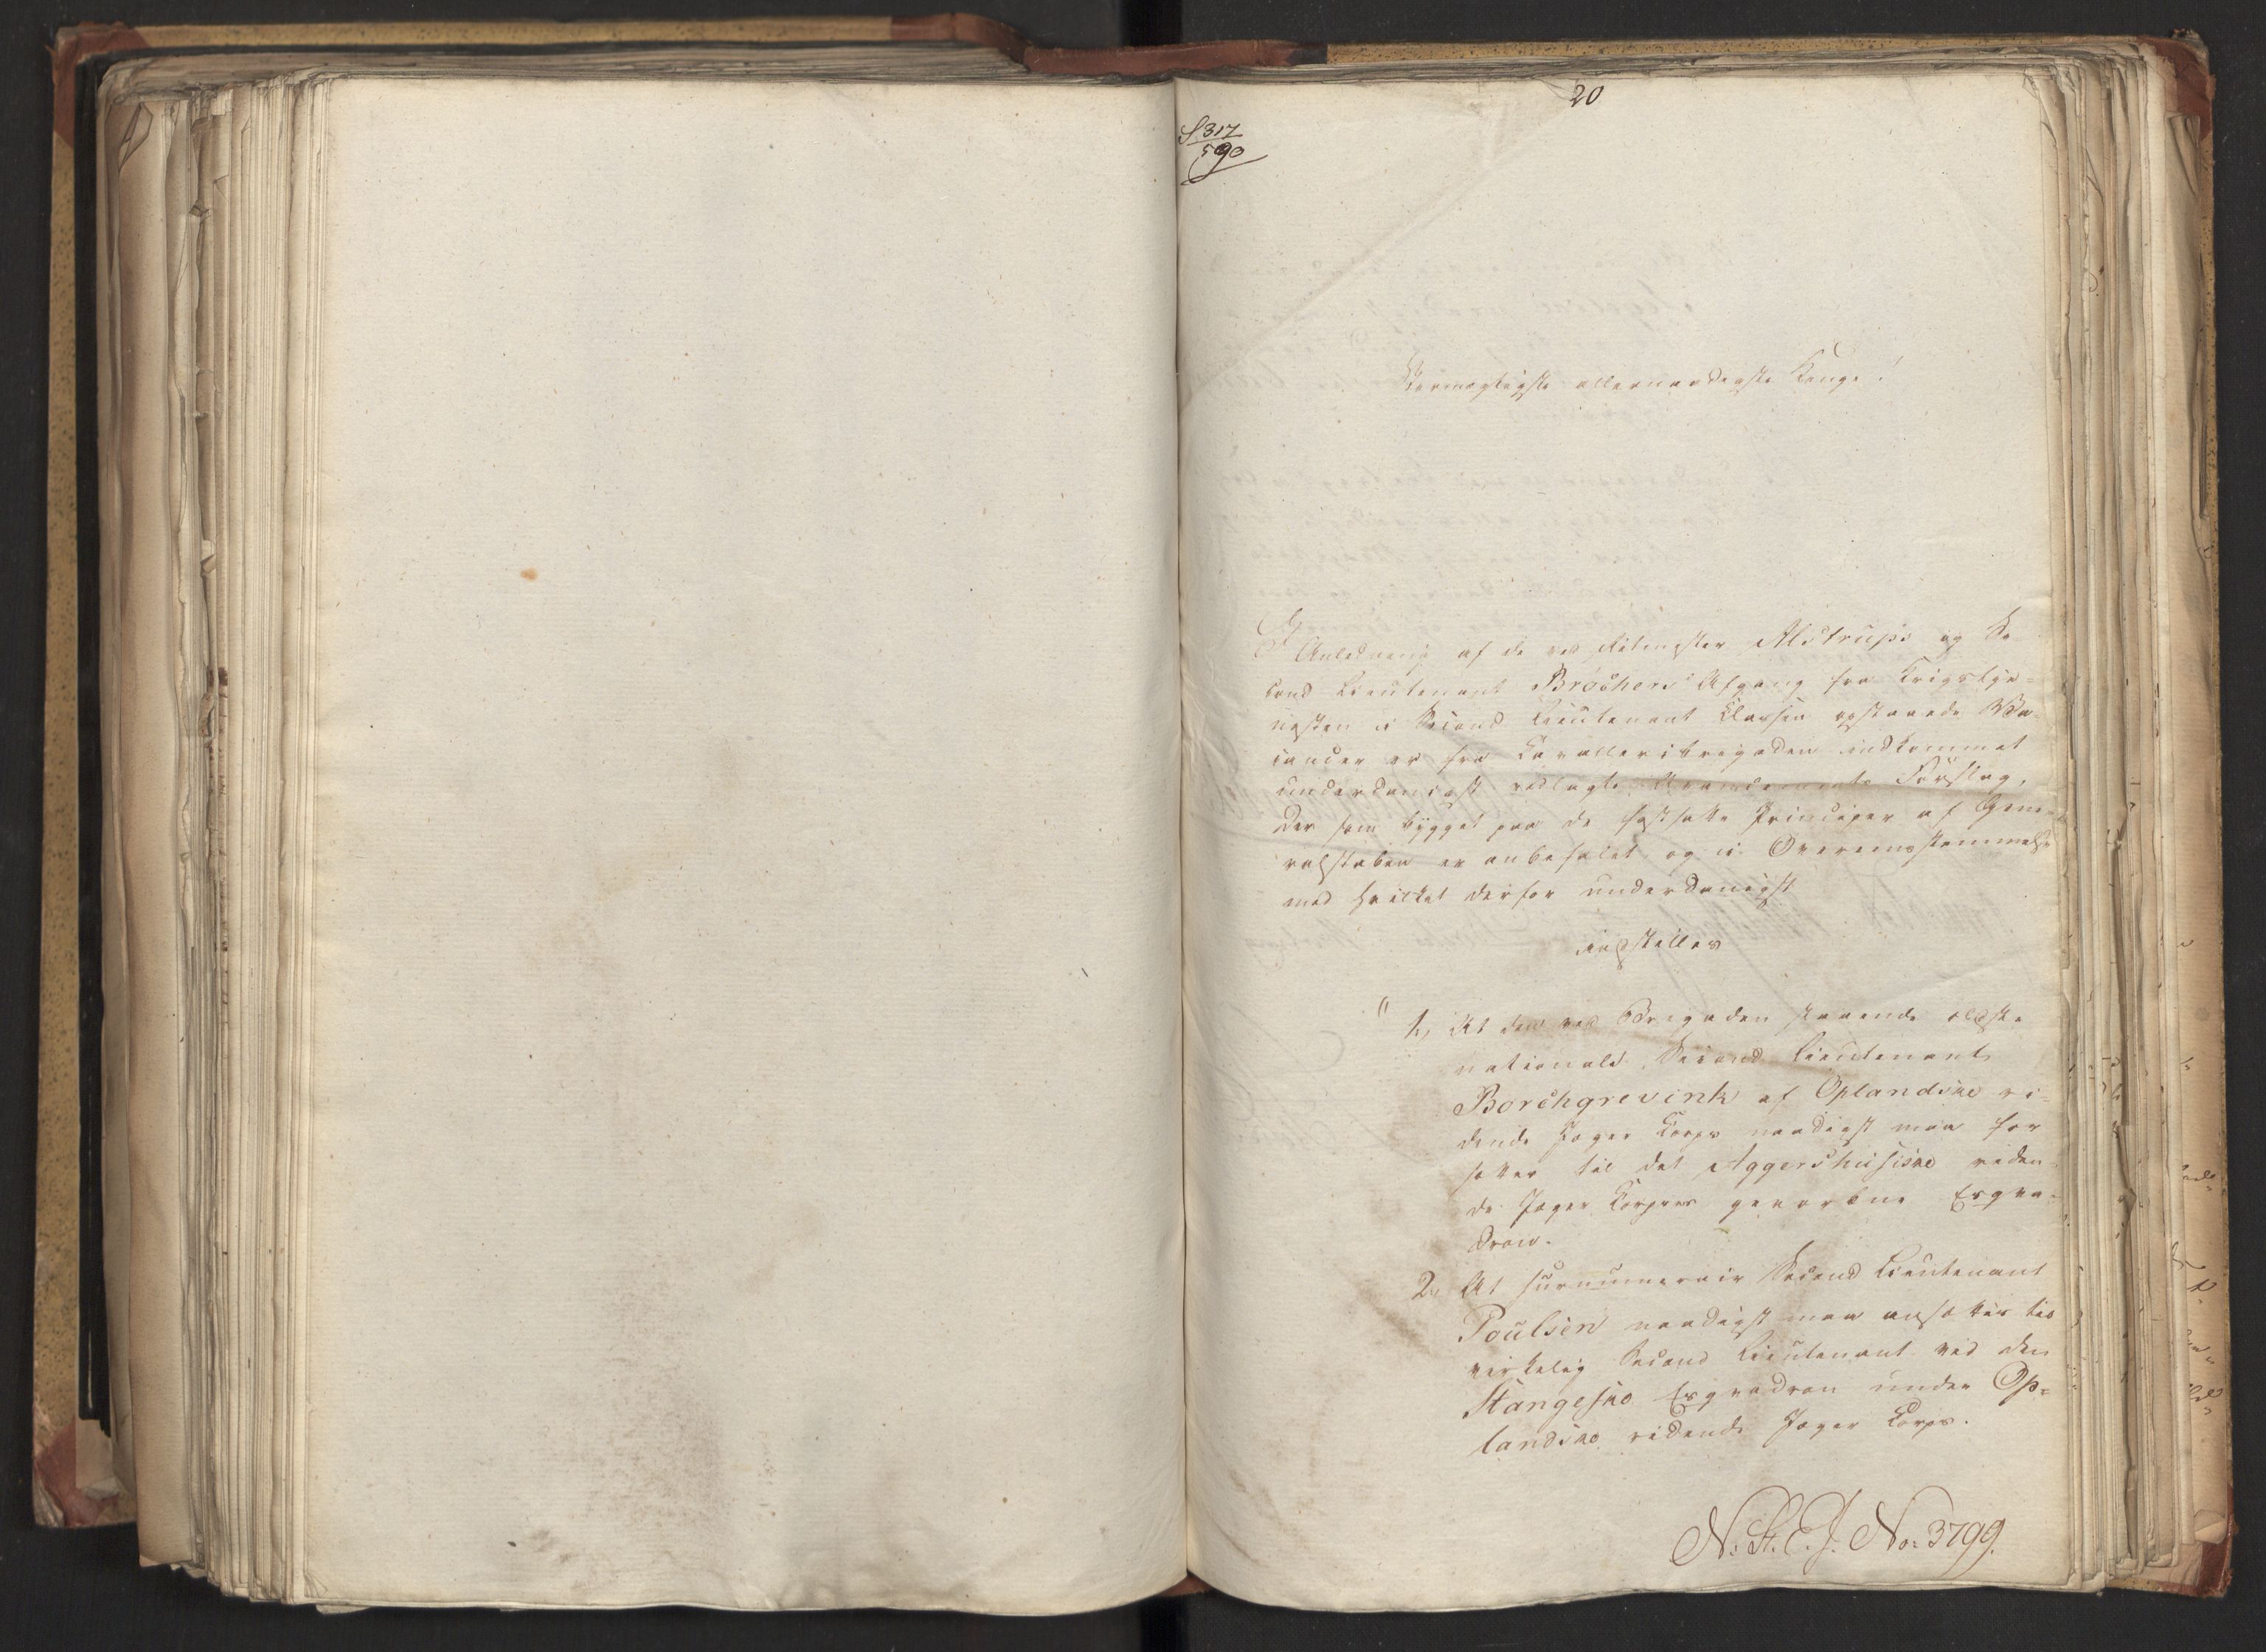 20
S. 317
590
Stormægtigste allernaadigste Konge!
I Anledning af de ved Ritmester Alstrups og Se
cond Lieutenant Bröchers Afgang fra Krigstje=
nesten i Second Lieutenant Classen opstaaede Va
cancer er fra Cavalleribrigaden indkommet
underdanigst vedlagte Avancements Forslag,
der som bygget paa de fastsatte Principer af Gene=
ralstaben er anbefalet og i Overeensstemmelse
med hvilket derfor underdanigst
indstilles
" 1, At den ved Brigaden staaende ældste
nationale Second Lieutenant
Borchgrevink af Oplandske ri=
dende Jæger Corps naadigst maa for
sættes til det Aggershusiske riden
de Jæger Corpses gevorbne Esqva=
dron.
2, At surnumerair Second Lieutenant
Poulsen naadigst maa ansættes til
virkelig Second Lieutenant ved den
Stangeske Esqvadron under Op=
landske ridende Jæger Corps.
N. St. E. J. No. 3799.